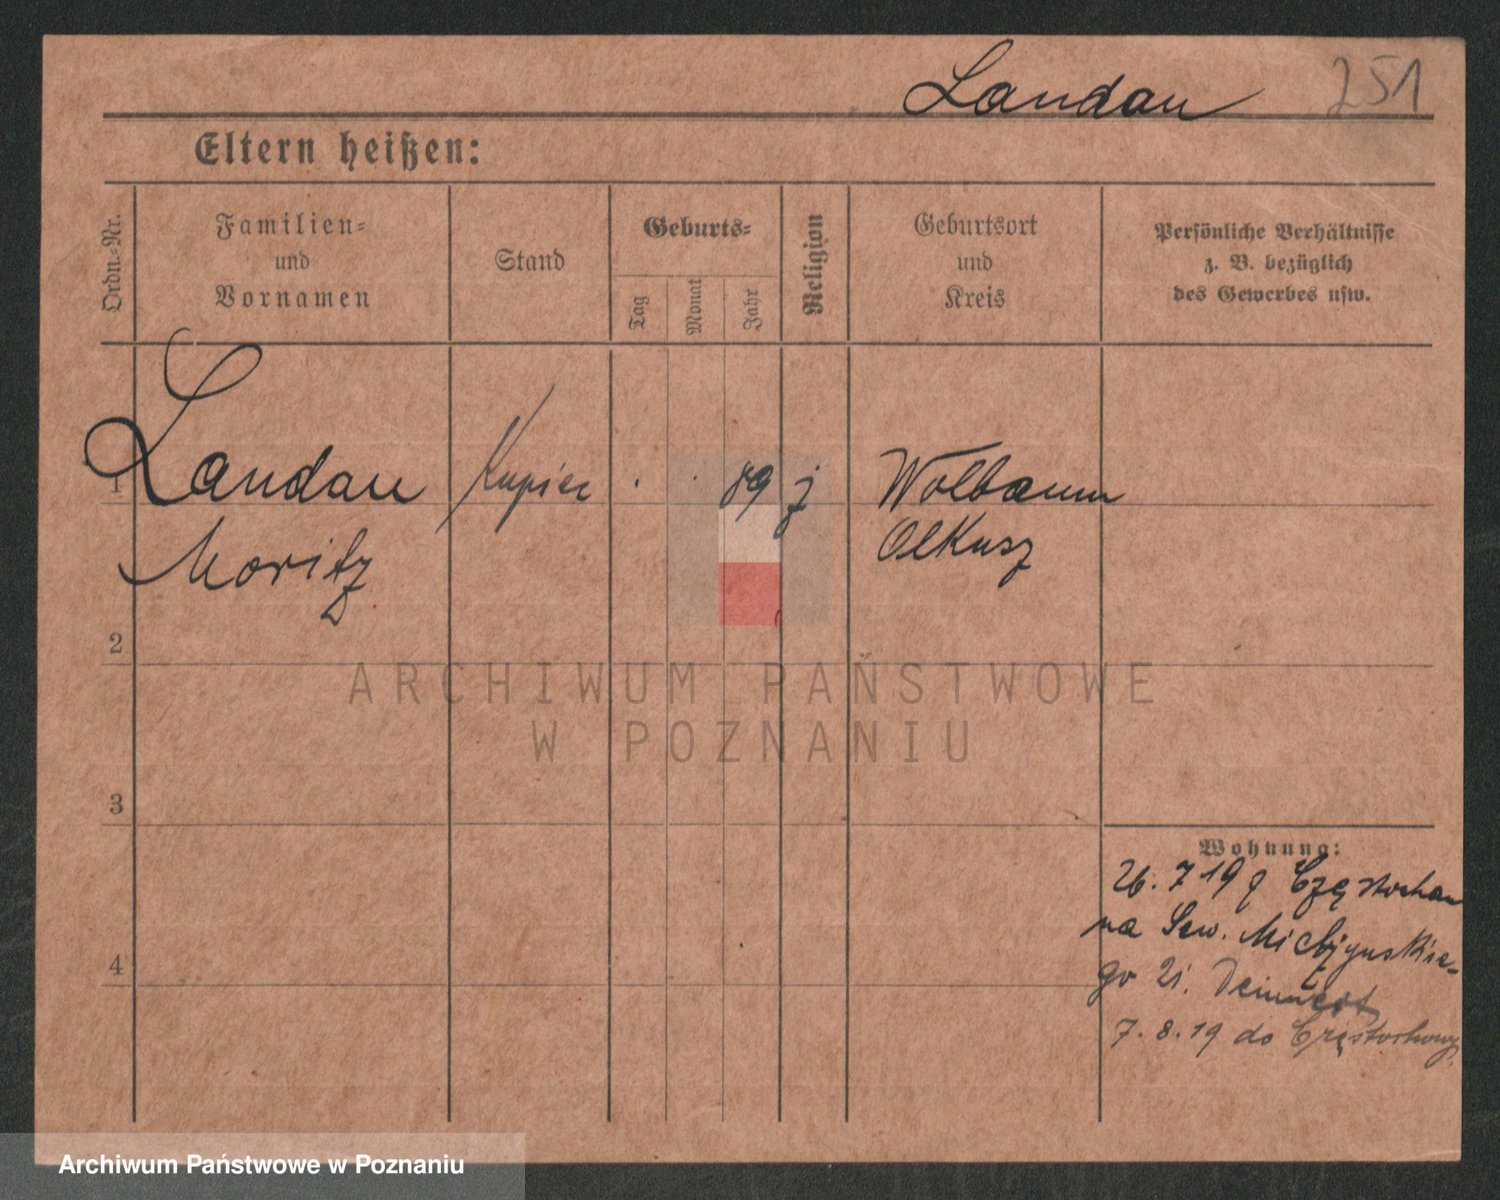 Landau 251
Eltern heißen:
Ordn.-Nr.
Familien-
und
Vornamen
Stand
Geburts-
Tag
Monat
Jahr
Religion
Geburtsort
und
Kreis
Persönliche Verhältnisse
z. B. bezüglich
des Gewerbes usw.
1 Landau Kupiec . . 89 j Wolbaum
Moritz Olkusz
2
ARCHIWUM PAŃSTWOWE
W POZNANIU
3
Wohnung:
26. 7 19 z
na Szw.
go 21.
4
7. 8. 19 do Częstochowy
Archiwum Państwowe w Poznaniu